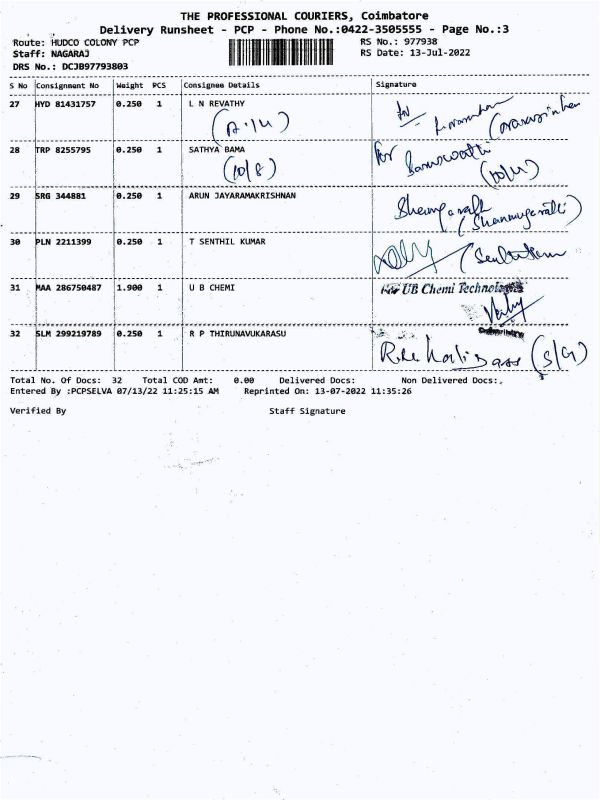 THE PROFESSIONAL COURIERS, Coimbatore
Delivery Runsheet - PCP - Phone No.:0422-3505555 - Page No.:3
Route: HUDCO COLONY PCP RS No.: 977938
Staff: NAGARAJ RS Date: 13-Jul-2022
DRS No.: DCJB97793803
S No Consignment No Weight PCS Consignee Details Signature
27 HYD 81431757 0.250 1 L N REVATHY
28 TRP 8255795 0.250 1 SATHYA BAMA for
(10/8)
29 SRG 344881 0.250 1 ARUN JAYARAMAKRISHNAN
30 PLN 2211399 0.250 1 T SENTHIL KUMAR
31 MAA 286750487 1.900 1 U B CHEMI For UB Chemi Technologies
32 SLM 299219789 0.250 1 R P THIRUNAVUKARASU
Total No. Of Docs: 32 Total COD Amt: 0.00 Delivered Docs: Non Delivered Docs:
Entered By :PCPSELVA 07/13/22 11:25:15 AM Reprinted On: 13-07-2022 11:35:26
Verified By Staff Signature